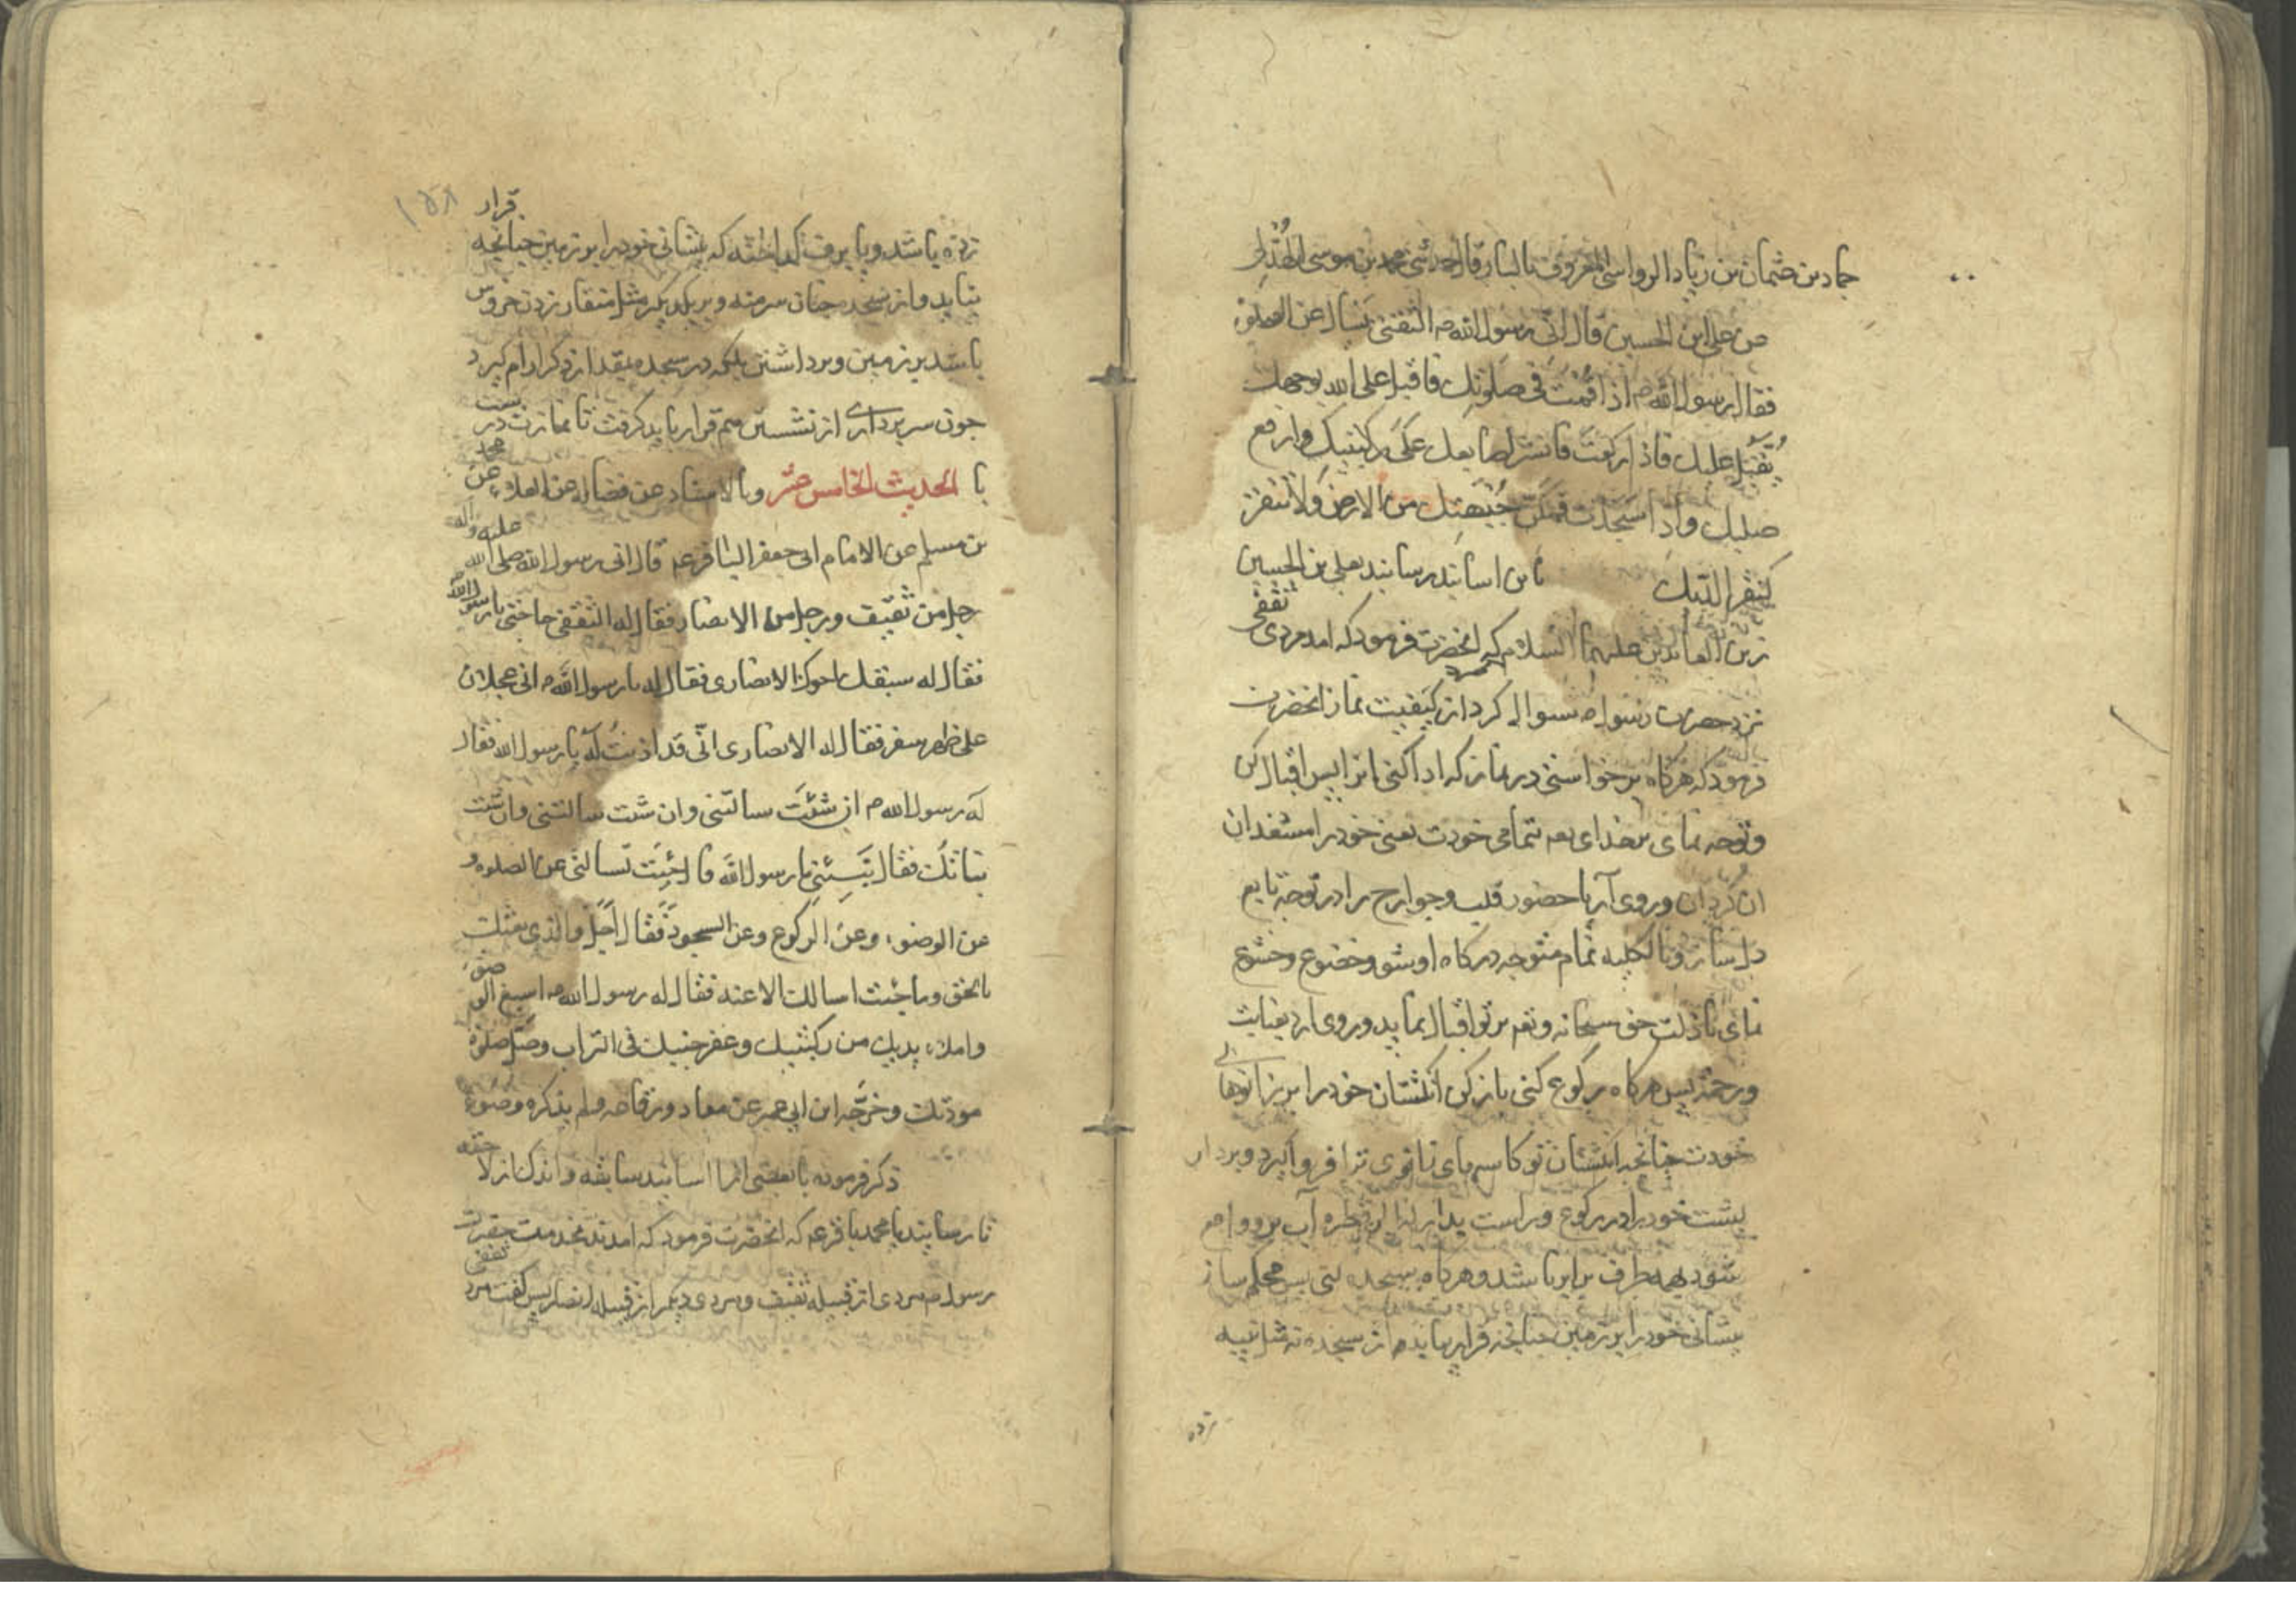 حماد بن عثمان بن زیاد الرواسی المعروف بالناب قال حدثنی محمد بن موسی الهذلی
عن علی ابن الحسین قال اتی رسول الله ص الثقفی یسال عن الصلوة
فقال رسول الله ص اذا قمت فی صلوتک فاقبل علی الله بوجهک
یقبل علیک فاذا رکعت فانشر اصابعک علی رکبتیک وارفع
صلبک واذا سجدت فمکن جبهتک من الارض ولا تنقر
کنقر الدیک باین اسانید رسانید بعلی بن الحسین
زین العابدین علیهما السلام که انحضرت فرمود که امد مردی ثقفی
نزد حضرت رسول ص سوال کرد از کیفیت نماز انحضرت
فرمود که هرکاه برخواستی در نماز که ادا کنی انرا پس اقبال کن
وتوجه نمای بر خدای بتمامی خودت یعنی خود را مستغد ان
ان کردان وروی آر با حضور قلب وجوارح را در توجه تابع
دل ساز وبالکلیه تمام متوجه درکاه او شو وخضوع وخشوع
نمای تا ذات حق سبحانه وتعه بر تو اقبال نماید وروی ارد بعنایت
ورحمة پس هرکاه برکوع کنی باز کن انکشتان خود را بر زانوهای
خودت چنانچه انکشتان تو کاسهای زانوی ترا فرو کیرد وبردار
پشت خود را در رکوع وراست بدار قطره آب بر وواقع
شود بهمه طرف برابر باشد وهرکاه بسجده کنی پس محکم ساز
پیشانی خود را بر زمین چنانچه قرار یابد از سجده نه مثل
زده
۱۵۸
زده باشد ویا برف کداخته که پیشانی خود را بر زمین چنانچه قرار
نیابد واز سجده چنان سر منه ویر یکدیکر مثل منقار زدن خروس
باشد بر زمین وبرداشتن بلکه در سجده بقدر از ذکر ارام کیرد
چون سر برداری از نشستن هم قرار باید کرفت تا نمازت درست
با الحدیث الخامس عشر وبالاسناد عن فضاله عن العلاء عن محمد
بن مسلم عن الامام ابی جعفر الباقر عم قال اتی رسول الله صلی الله علیه واله
رجل من ثقیف ورجل من الانصار فقال له الثقفی حاجتی یا رسول الله
فقال له سبقک اخوک الانصاری فقال له یا رسول الله ص انی عجلان
علی ظهر سفر فقال له الانصاری انی قد اذنت له یا رسول الله فقال
له رسول الله ص ان شئت سالتنی وان شئت سالتنی وان شئت
نباتک فقال نبئنی یا رسول الله قال جئت تسالنی عن الصلوة و
عن الوضوء وعن الرکوع وعن السجود فقال اجل والذی بعثک
بالحق وما جئت اسالک الا عنه فقال له رسول الله ص اسبغ الوضوء
واملاء یدیک من رکبتیک وعفر جبینک فی التراب وصل صلوة
مودع وخرجه ابن ابی عمیر عن معاد ورفاعه ولم یذکره وضوء
ذکر فرموده با بعضی اسانید سابقه
تا رسانیدیا محمد باقر عم که انحضرت فرمود که امدند بخدمت حضرت
رسول ص مردی از قبیله ثقیف ومردی دیکر از قبیله انصار پس کفت مرد ثقفی